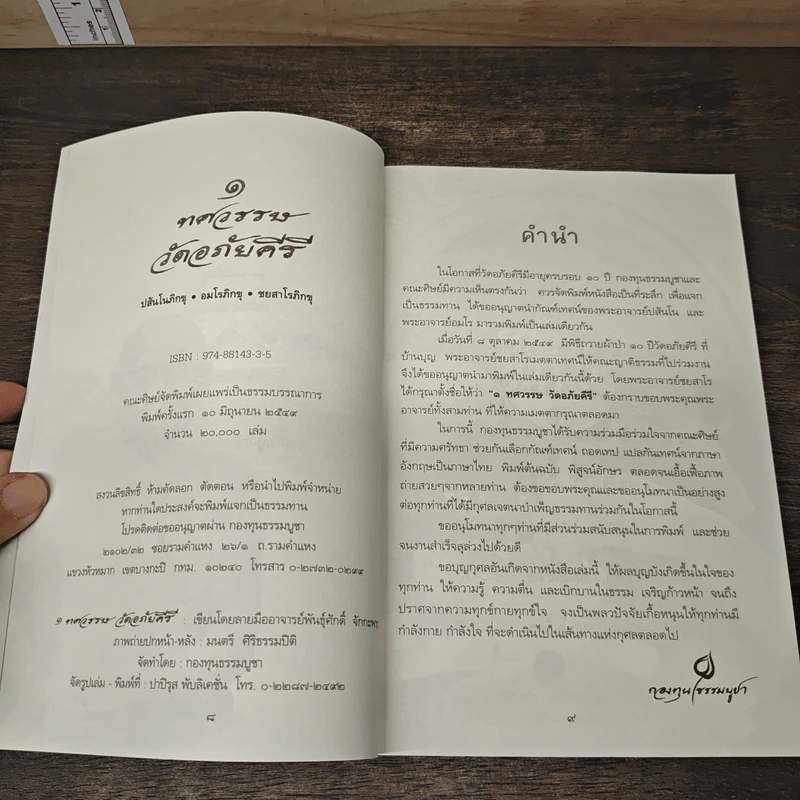 1
2
inches
๑
ทศวรรษ
วัดอภัยคีรี
ปสันโนภิกขุ • อมโรภิกขุ • ชยสาโรภิกขุ
ISBN : 974-88143-3-5
คณะศิษย์จัดพิมพ์เผยแพร่เป็นธรรมบรรณาการ
พิมพ์ครั้งแรก ๑๐ มิถุนายน ๒๕๔๙
จำนวน ๒๐,๐๐๐ เล่ม
สงวนลิขสิทธิ์ ห้ามคัดลอก ตัดตอน หรือนำไปพิมพ์จำหน่าย
หากท่านใดประสงค์จะพิมพ์แจกเป็นธรรมทาน
โปรดติดต่อขออนุญาตผ่าน กองทุนธรรมบูชา
๒๑๐๒/๓๒ ซอยรามคำแหง ๒๖/๑ ถ.รามคำแหง
แขวงหัวหมาก เขตบางกะปิ กทม. ๑๐๒๔๐ โทรสาร ๐-๒๗๓๒-๐๒๙๙
๑ ทศวรรษ วัดอภัยคีรี : เขียนโดยลายมืออาจารย์พันธุ์ศักดิ์ จักกะพาก
ภาพถ่ายปกหน้า-หลัง : มนตรี ศิริธรรมปิติ
จัดทำโดย : กองทุนธรรมบูชา
จัดรูปเล่ม - พิมพ์ที่ : ปาปิรุส พับลิเคชั่น โทร. ๐-๒๒๘๗-๒๔๙๒
๘
คำนำ
ในโอกาสที่วัดอภัยคีรีมีอายุครบรอบ ๑๐ ปี กองทุนธรรมบูชาและ
คณะศิษย์มีความเห็นตรงกันว่า ควรจัดพิมพ์หนังสือเป็นที่ระลึก เพื่อแจก
เป็นธรรมทาน ได้ขออนุญาตนำกัณฑ์เทศน์ของพระอาจารย์ปสันโน และ
พระอาจารย์อมโร มารวมพิมพ์เป็นเล่มเดียวกัน
เมื่อวันที่ ๘ ตุลาคม ๒๕๔๙ มีพิธีถวายผ้าป่า ๑๐ ปีวัดอภัยคีรี ที่
บ้านบุญ พระอาจารย์ชยสาโรเมตตาเทศน์ให้คณะญาติธรรมที่ไปร่วมงาน
จึงได้ขออนุญาตนำมาพิมพ์ในเล่มเดียวกันนี้ด้วย โดยพระอาจารย์ชยสาโร
ได้กรุณาตั้งชื่อให้ว่า "๑ ทศวรรษ วัดอภัยคีรี" ต้องกราบขอบพระคุณพระ
อาจารย์ทั้งสามท่าน ที่ให้ความเมตตากรุณาตลอดมา
ในการนี้ กองทุนธรรมบูชาได้รับความร่วมมือร่วมใจจากคณะศิษย์
ที่มีความศรัทธา ช่วยกันเลือกกัณฑ์เทศน์ ถอดเทป แปลกันเทศน์จากภาษา
อังกฤษเป็นภาษาไทย พิมพ์ต้นฉบับ พิสูจน์อักษร ตลอดจนเอื้อเฟื้อภาพ
ถ่ายสวยๆจากหลายท่าน ต้องขอขอบพระคุณและขออนุโมทนาเป็นอย่างสูง
ต่อทุกท่านที่ได้มีกุศลเจตนาบำเพ็ญธรรมทานร่วมกันในโอกาสนี้
ขออนุโมทนาทุกๆท่านที่มีส่วนร่วมสนับสนุนในการพิมพ์ และช่วย
จนงานสำเร็จลุล่วงไปด้วยดี
ขอบุญกุศลอันเกิดจากหนังสือเล่มนี้ ให้ผลบุญบังเกิดขึ้นในใจของ
ทุกท่าน ให้ความรู้ ความตื่น และเบิกบานในธรรม เจริญก้าวหน้า จนถึง
ปราศจากความทุกข์กายทุกข์ใจ จงเป็นพลวปัจจัยเกื้อหนุนให้ทุกท่านมี
กำลังกาย กำลังใจ ที่จะดำเนินไปในเส้นทางแห่งกุศลตลอดไป
กองทุนธรรมบูชา
๙